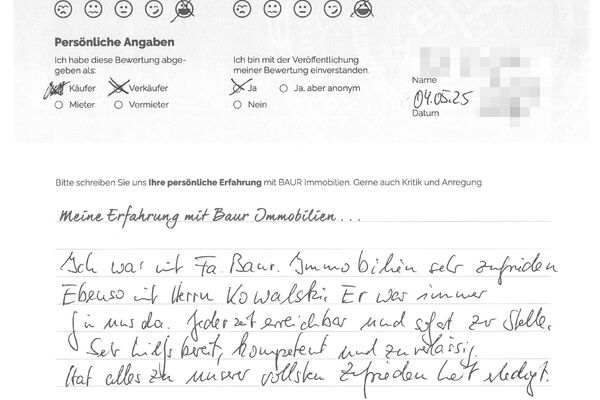 Persönliche Angaben
Ich habe diese Bewertung abge-
geben als:
Käufer
Verkäufer
Mieter
Vermieter
Ich bin mit der Veröffentlichung
meiner Bewertung einverstanden.
Ja
Ja, aber anonym
Nein
Name
04.05.25
Datum
Bitte schreiben Sie uns Ihre persönliche Erfahrung mit BAUR Immobilien. Gerne auch Kritik und Anregung.
Meine Erfahrung mit Baur Immobilien...
Ich war mit Fa. Baur. Immobilien sehr zufrieden
Ebenso mit Herrn Kowalski. Er war immer
für uns da. Jederzeit erreichbar und sofort zur Stelle.
Sehr hilfsbereit, kompetent und zuverlässig.
Hat alles zu unserer vollsten Zufriedenheit erledigt.